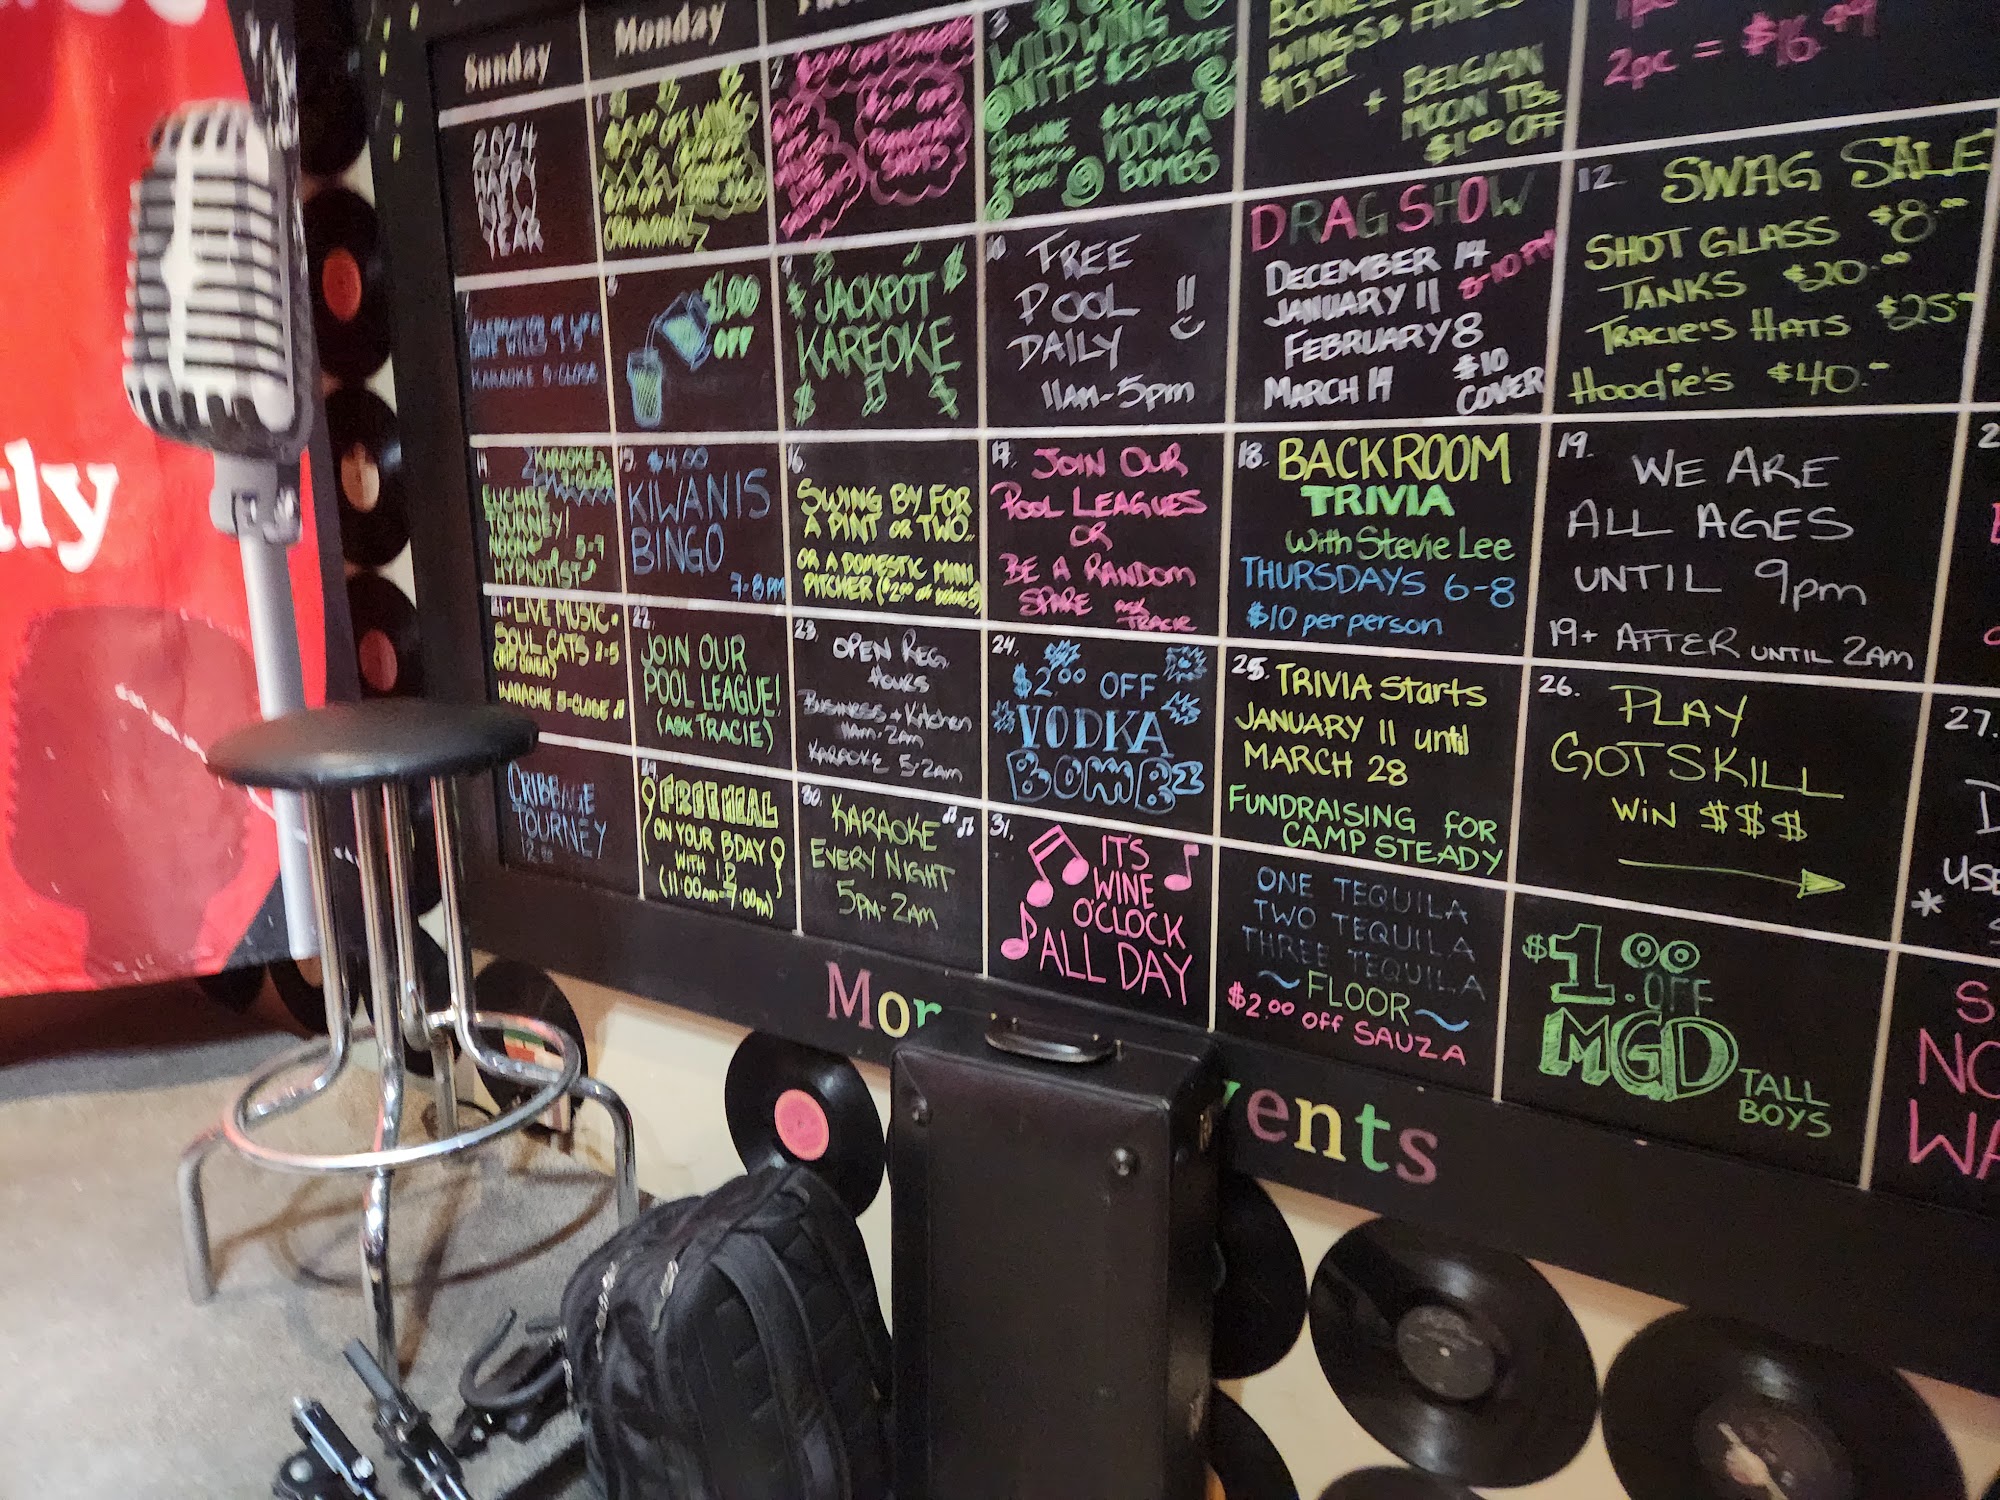 tly
Sunday
Monday
2024
HAPPY
NEW
YEAR
1.
2.
3
WILD WING
NITE $5.00 OFF
$2.00 OFF
VODKA
BOMBS
WINGS & FRIES
$13.99
+ BELGIAN
MOON TBs
$1.00 OFF
2pc = $16.99
KARAOKE 5-CLOSE
8
$1.00
OFF
9
JACKPOT
KAREOKE
10
FREE
POOL
DAILY
!!
11am-5pm
DRAG SHOW
DECEMBER 14
8-10PM
JANUARY 11
FEBRUARY 8
MARCH 14
$10
COVER
12
SWAG SALE
SHOT GLASS $8.00
TANKS $20.00
TRACIE'S HATS $25.00
HOODIE'S $40.00
14.
KARAOKE
EUCHRE
TOURNEY!
NOON
5-7
HYPNOTIST
15.
$4.00
KIWANIS
BINGO
7-8PM
16.
SWING BY FOR
A PINT OR TWO...
OR A DOMESTIC MINI
PITCHER
17.
JOIN OUR
POOL LEAGUES
OR
BE A RANDOM
SPARE ASK
TRACIE
18.
BACKROOM
TRIVIA
with Stevie Lee
THURSDAYS 6-8
$10 per person
19.
WE ARE
ALL AGES
UNTIL 9pm
19+ AFTER UNTIL 2AM
21. LIVE MUSIC
SOUL CATS 2-5
(NO COVER)
KARAOKE 5-CLOSE
22.
JOIN OUR
POOL LEAGUE!
(ASK TRACIE)
23.
OPEN REG.
HOURS
BUSINESS + KITCHEN
11am-2am
KARAOKE 5-2am
24.
$2.00 OFF
VODKA
BOMBS
25. TRIVIA Starts
JANUARY 11 until
MARCH 28
FUNDRAISING FOR
CAMP STEADY
26.
PLAY
GOTSKILL
WIN $$$
27.
CRIBBAGE
TOURNEY
12.00
29.
FREE MEAL
ON YOUR BDAY
WITH I.D
(11:00am-7:00pm)
30.
KARAOKE
EVERY NIGHT
5PM-2AM
31.
IT'S
WINE
O'CLOCK
ALL DAY
ONE TEQUILA
TWO TEQUILA
THREE TEQUILA
~FLOOR~
$2.00 OFF SAUZA
$1.00 OFF
MGD TALL
BOYS
USE
*
NO
WA
Mor
vents